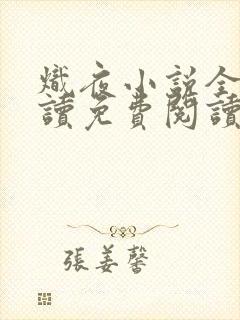 熾夜小說全
讀免費閱讀
張姜馨